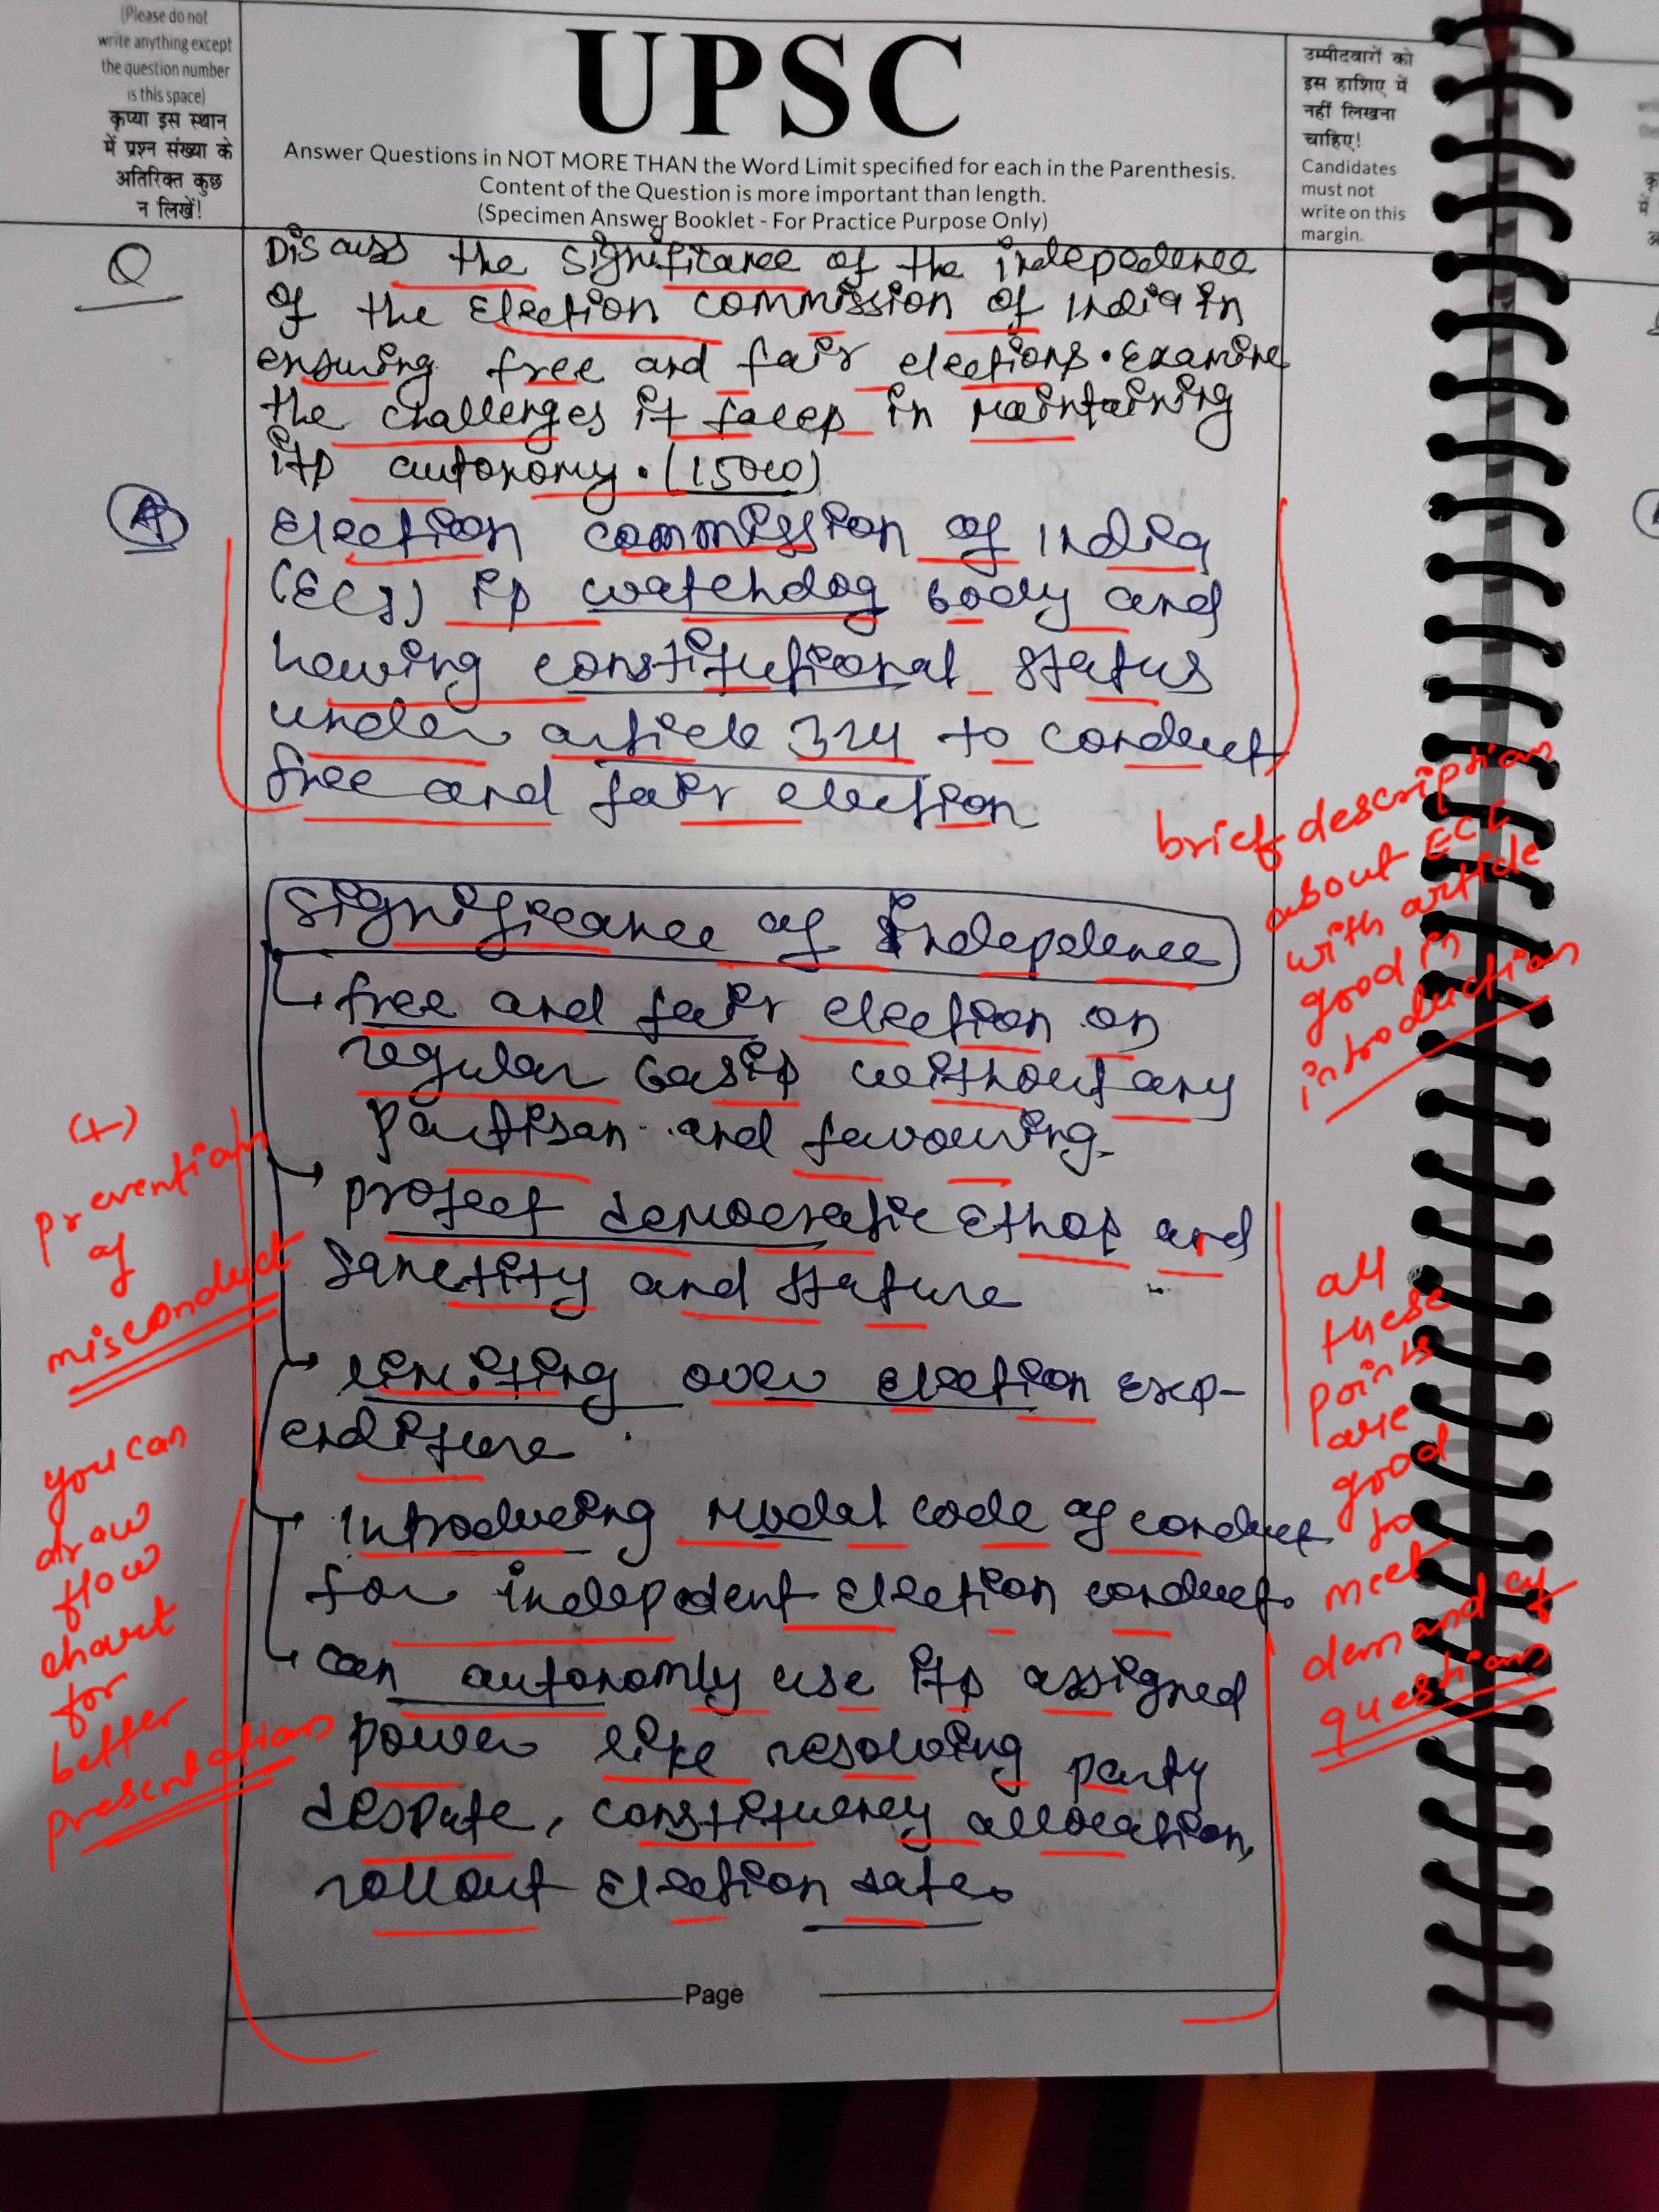 (Please do not
write anything except
the question number
is this space)
कृप्या इस स्थान
में प्रश्न संख्या के
अतिरिक्त कुछ
न लिखें!
UPSC
Answer Questions in NOT MORE THAN the Word Limit specified for each in the Parenthesis.
Content of the Question is more important than length.
(Specimen Answer Booklet - For Practice Purpose Only)
उम्मीदवारों को
इस हाशिए में
नहीं लिखना
चाहिए!
Candidates
must not
write on this
margin.
Q
Discuss the significance of the indepedence
of the Election commission of India in
ensuring free and fair elections. Examine
the challenges it faces in maintaining
its autonomy. (150w)
A
Election commission of India
(ECI) is watchdog body and
having constitutional status
under article 324 to conduct
free and fair election
brief description
about ECI
with article
good in
introduction
Significance of Indepdence
free and fair election on
regular basis without any
partisan and favouring.
protect democratic Ethos and
sanctity and stature
limiting over election exp-
enditure.
Introducing Modal code of conduct
for indepdent Election conduct.
can autonomly use its assigned
power like resolving party
despute, constituency allocation,
rollout Election dates
(+)
prevention
of
misconduct
you can
draw
flow
chart
for
better
presentation
all
these
points
are
good
to
meet
demand of
question
Page